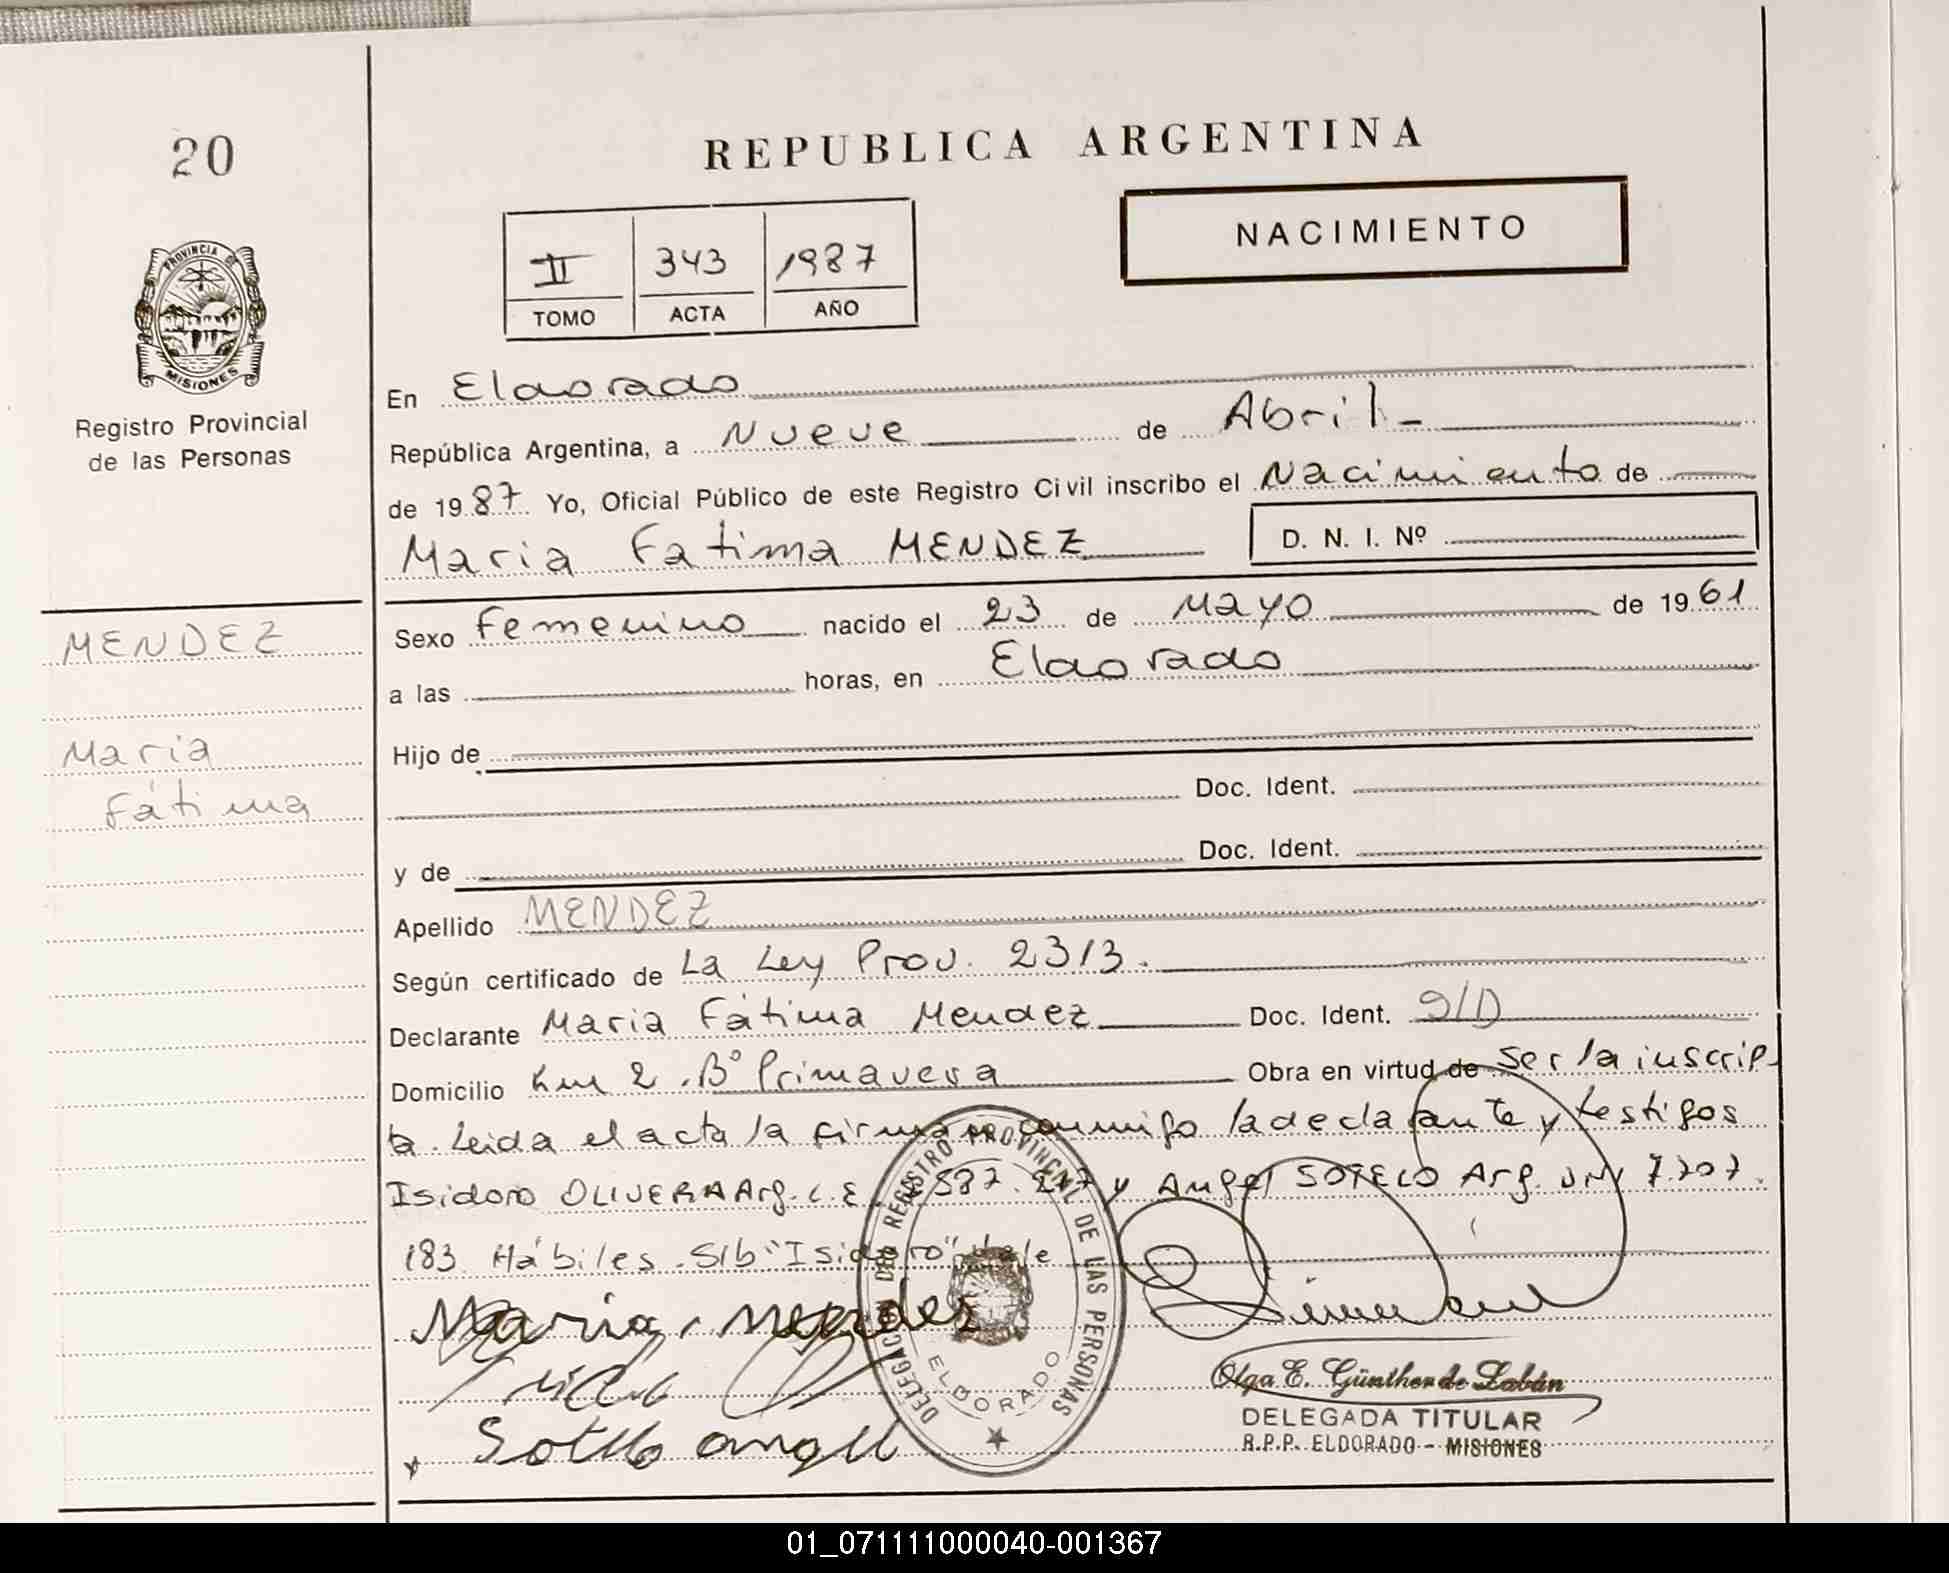 20
PROVINCIA DE
MISIONES
Registro Provincial
de las Personas
MENDEZ
Maria
Fátima
REPUBLICA ARGENTINA
II 343 1987
TOMO ACTA AÑO
NACIMIENTO
En Eldorado
República Argentina, a Nueve de Abril
de 1987 Yo, Oficial Público de este Registro Civil inscribo el Nacimiento de
Maria Fatima MENDEZ D. N. I. Nº
Sexo Femenino nacido el 23 de Mayo de 1961
a las horas, en Eldorado
Hijo de
Doc. Ident.
y de Doc. Ident.
Apellido MENDEZ
Según certificado de La Ley Prov. 2313.
Declarante Maria Fátima Mendez Doc. Ident. S/D
Domicilio Km 2 . Bº Primavera Obra en virtud de ser la inscrip-
ta. Leida el acta la firman conmigo la declarante y testigos
Isidoro OLIVERA Arg. C.E. y Angel SOTELO Arg. DNI 7.207.
183. Hábiles. S/b "Isidoro" Vale
Maria, Mendez
Sotelo angel
DELEGACION DEL REGISTRO PROVINCIAL DE LAS PERSONAS
ELDORADO
Olga E. Günther de Labán
DELEGADA TITULAR
R.P.P. ELDORADO - MISIONES
01_071111000040-001367